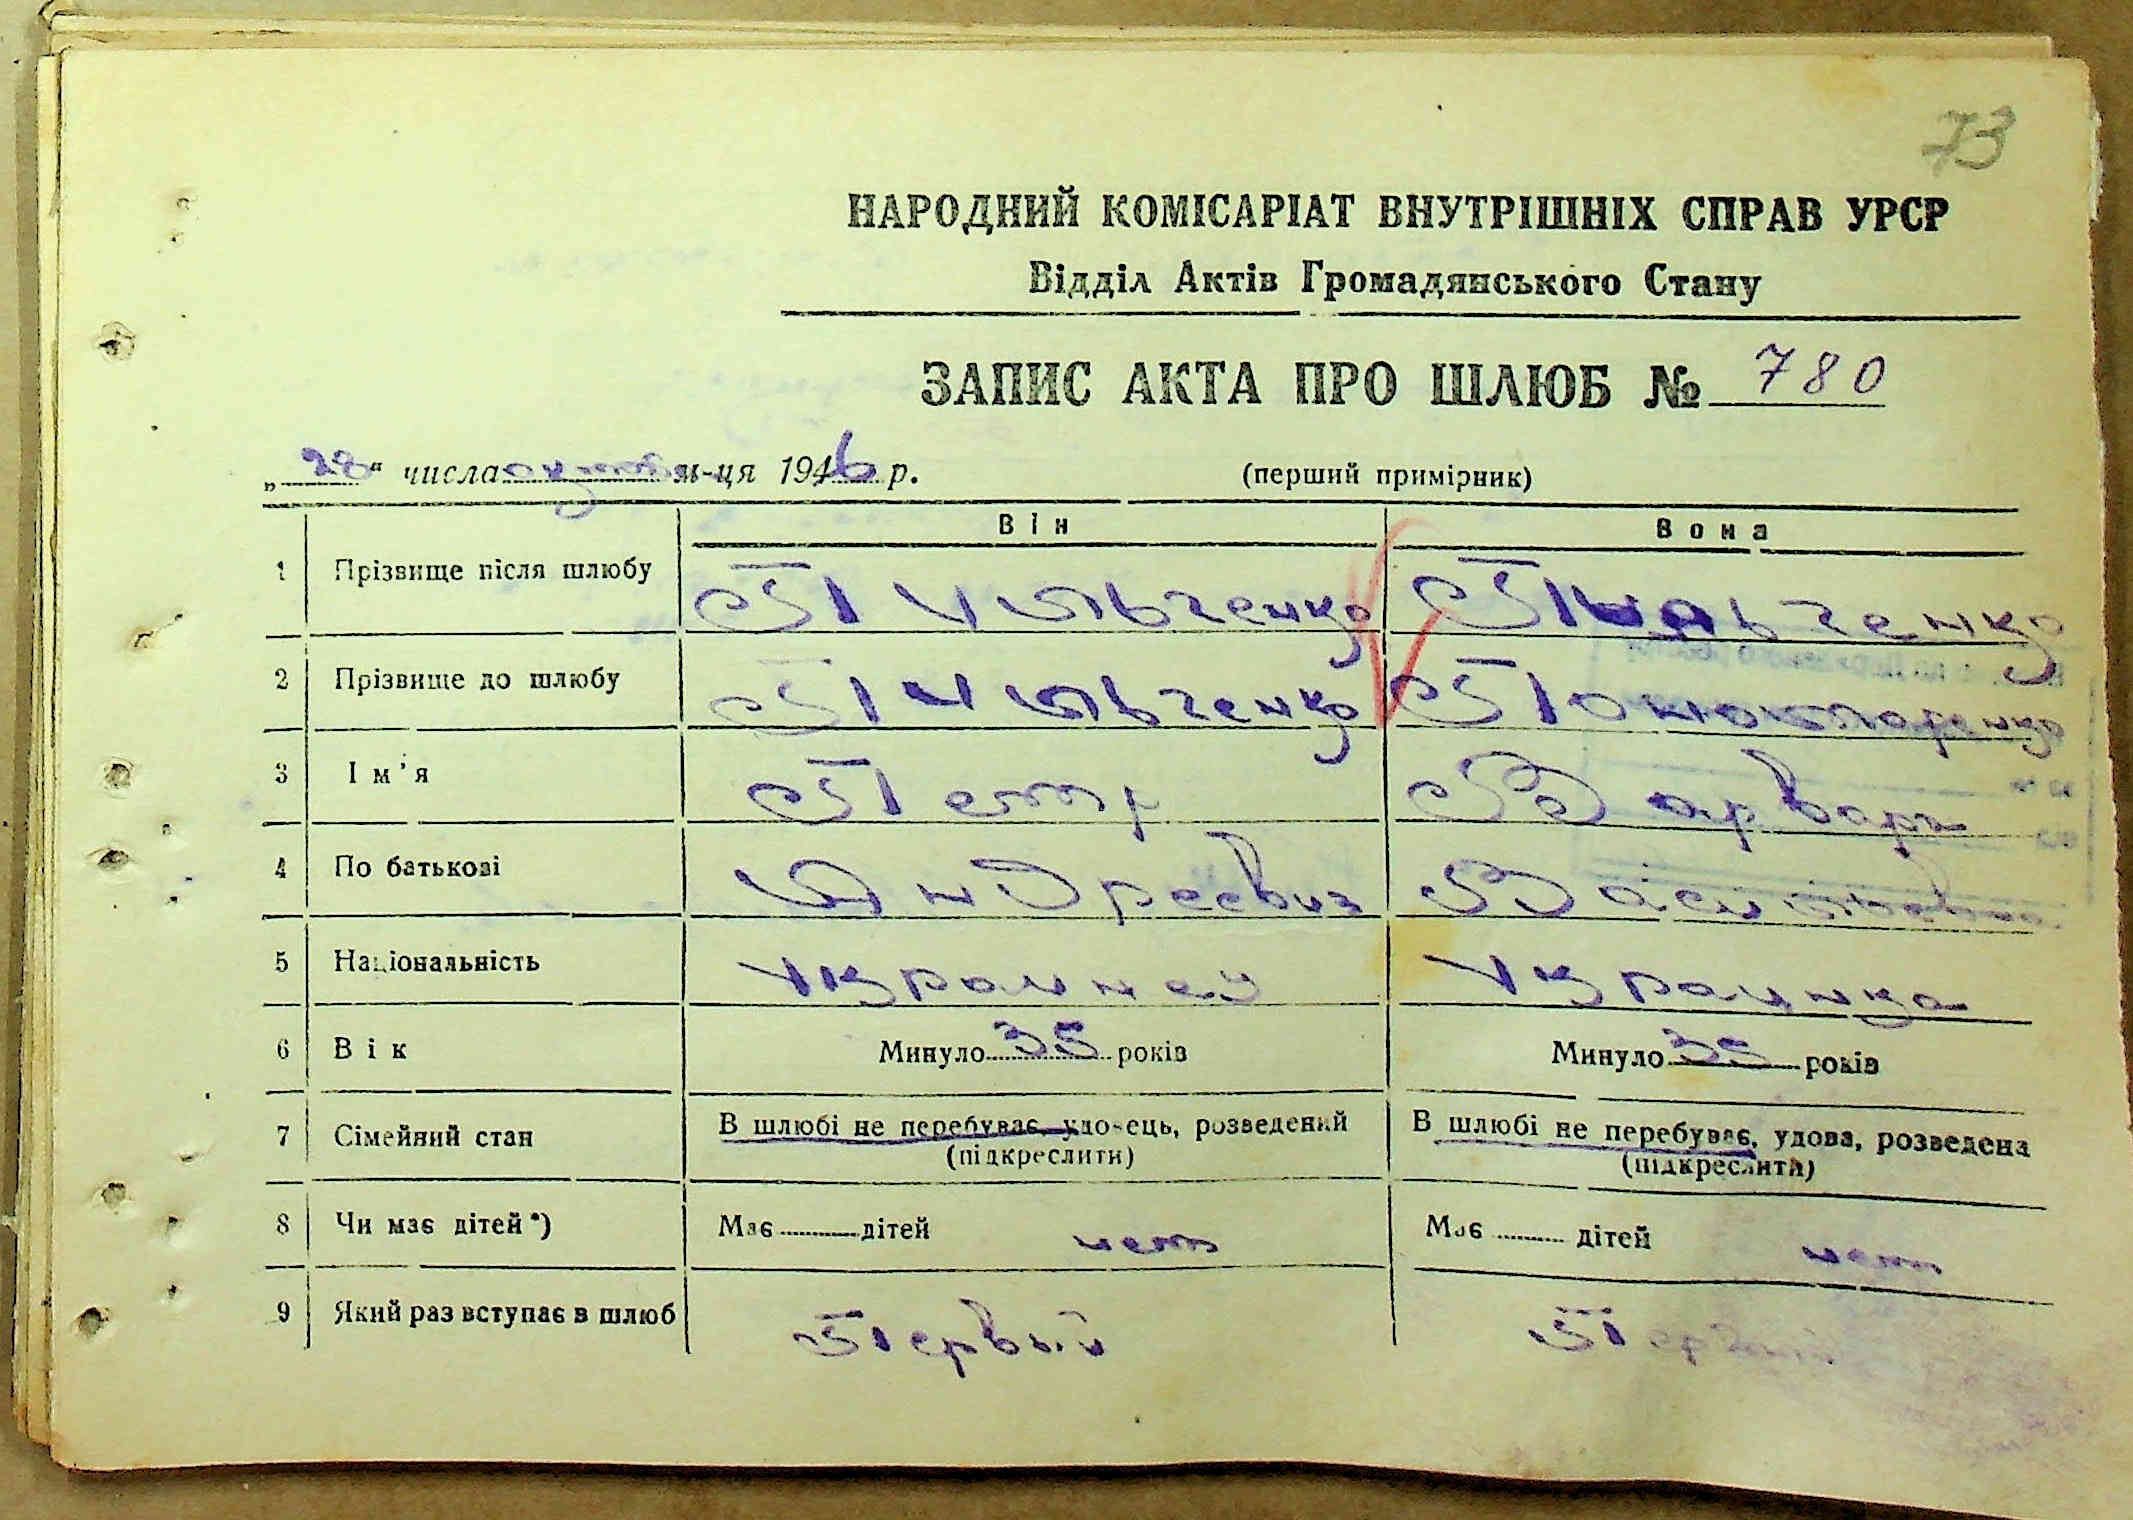 73
НАРОДНИЙ КОМІСАРІАТ ВНУТРІШНІХ СПРАВ УРСР
Відділ Актів Громадянського Стану
ЗАПИС АКТА ПРО ШЛЮБ № 780
„28“ числа октября м-ця 1946 р. (перший примірник)
Він Вона
1 Прізвище після шлюбу
2 Прізвище до шлюбу
3 Ім'я Петр Варвара
4 По батькові Андреевич Васильевна
5 Національність Украинец Украинка
6 Вік Минуло 35 років Минуло 35 років
7 Сімейний стан В шлюбі не перебуває, удовець, розведений В шлюбі не перебуває, удова, розведена
(підкреслити) (підкреслити)
8 Чи має дітей*) Має дітей нет Має дітей нет
9 Який раз вступає в шлюб Первый Первый